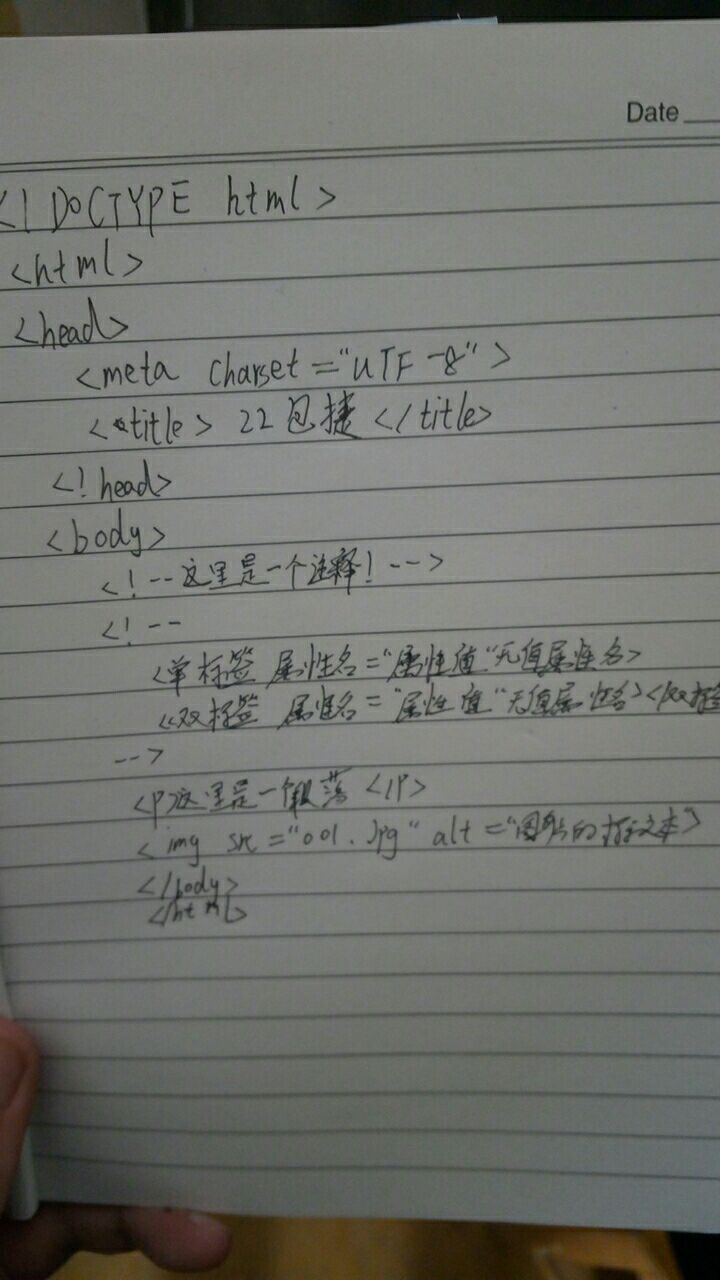 Date
<! DOCTYPE html>
<html>
<head>
<meta charset="UTF-8">
<title> 22包捷 </title>
<! head>
<body>
<!--这里是一个注释! -->
<!--
<单标签 属性名="属性值"无值属性名>
<双标签 属性名="属性值"无值属性名></双标签
-->
<P>这里是一个段落</P>
<img src="001.Jpg" alt="图片的 文本">
</body>
</html>